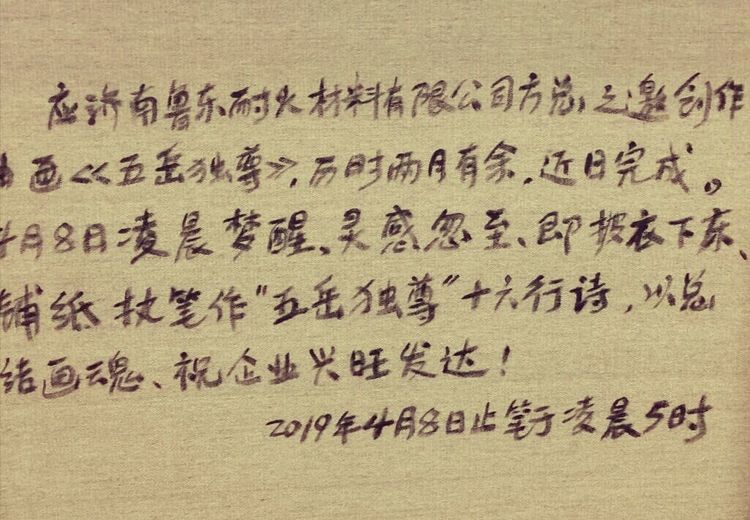 应济南鲁东耐火材料有限公司方总之邀创作
油画《五岳独尊》,历时两月有余,近日完成。
4月8日凌晨梦醒、灵感忽至、即披衣下床、
铺纸执笔作"五岳独尊"十六行诗,以总
结画魂、祝企业兴旺发达!
2019年4月8日止笔于凌晨5时